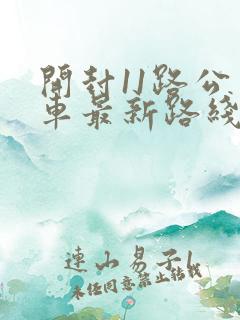 開封11路公
車最新路綫
連山易子1
未经同意禁止转载